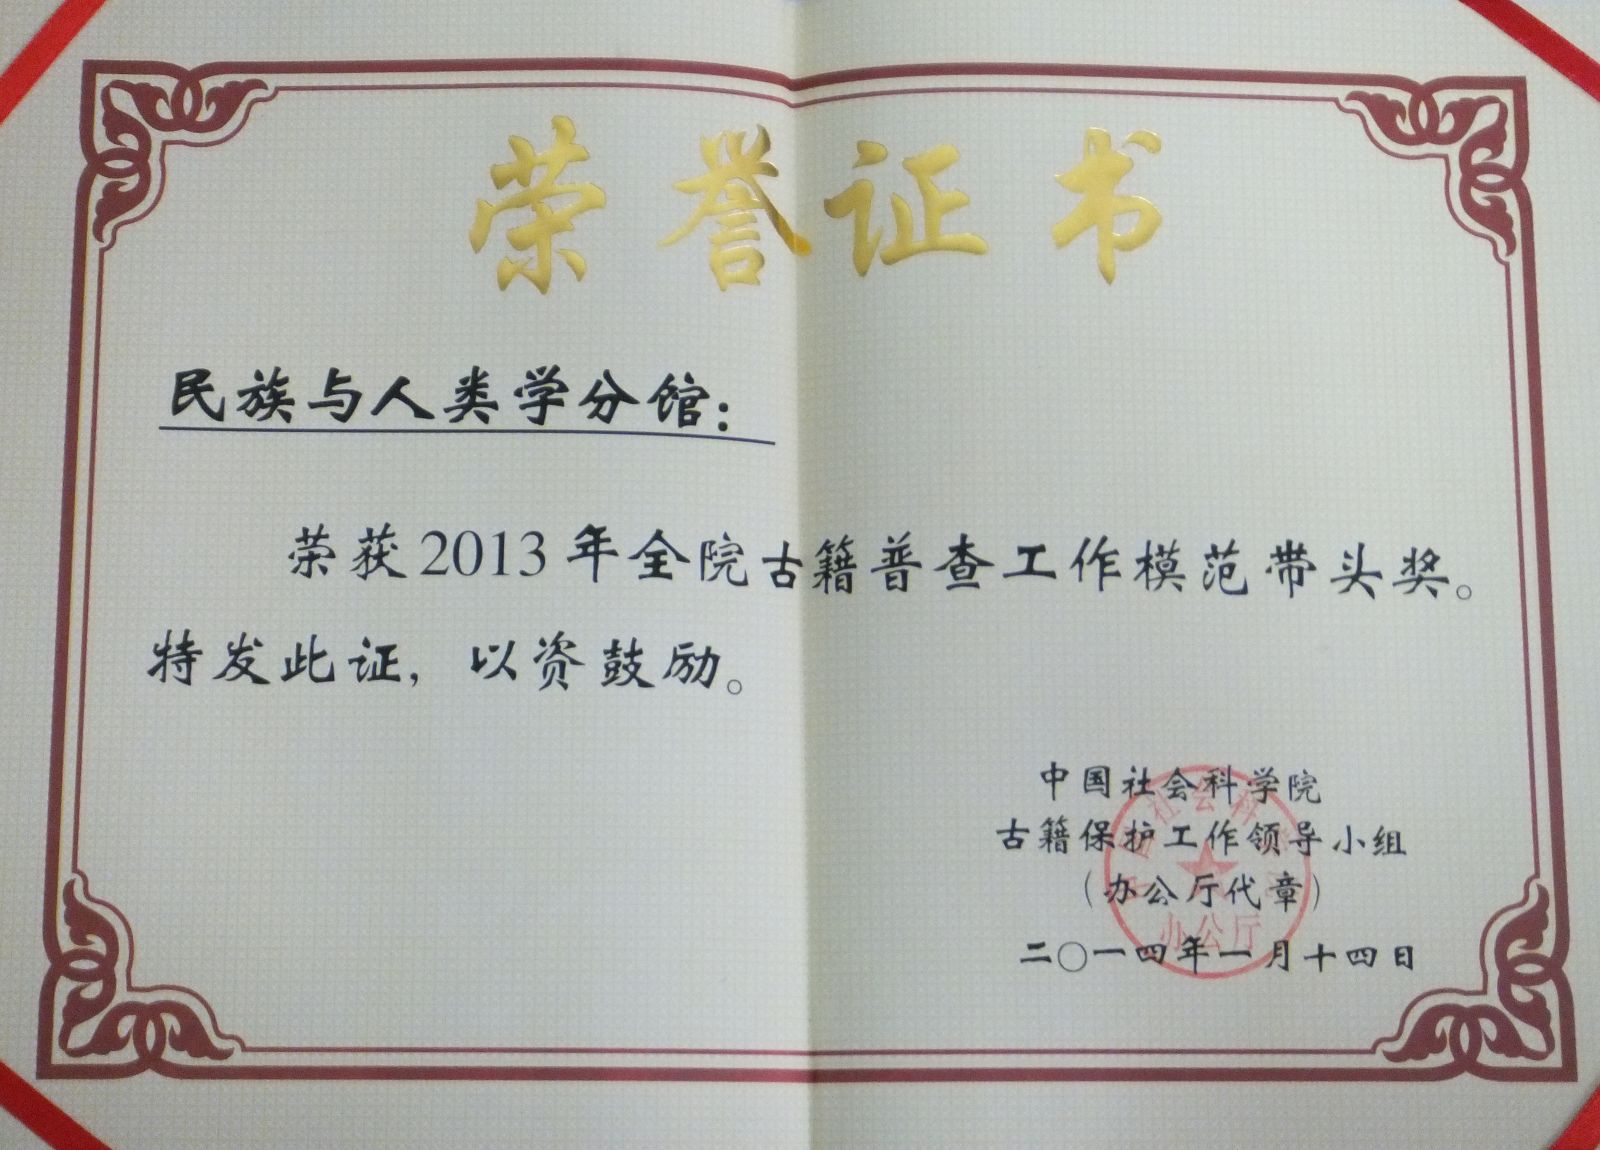 荣誉证书
民族与人类学分馆：
荣获2013年全院古籍普查工作模范带头奖。
特发此证，以资鼓励。
中国社会科学院
古籍保护工作领导小组
（办公厅代章）
二〇一四年一月十四日
社会科
办公厅